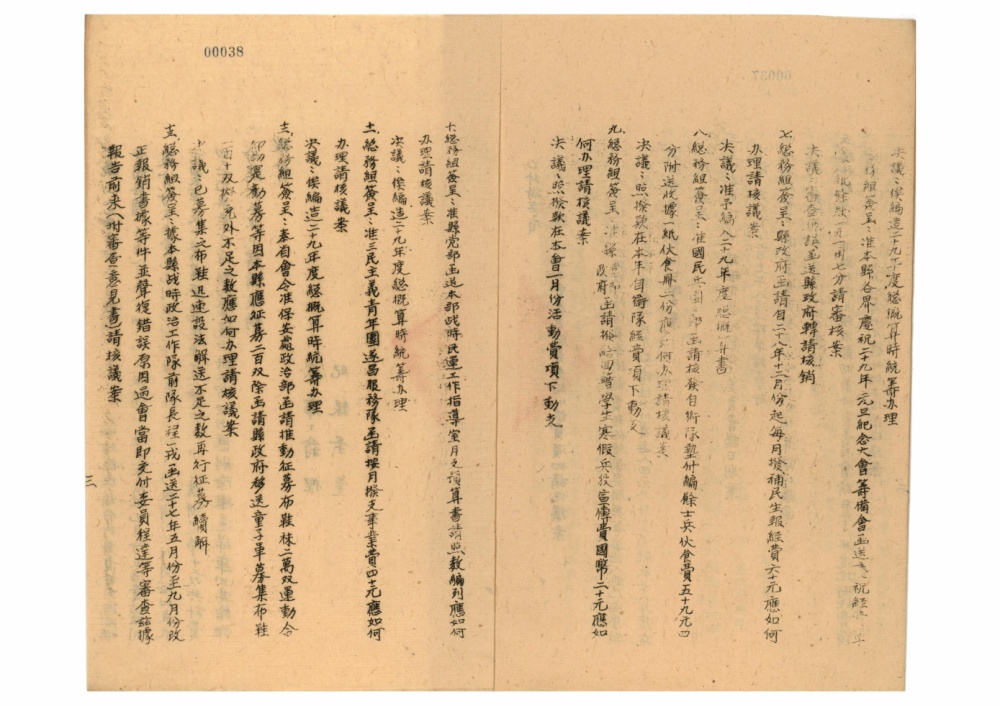 決議：俟編造二十九年度總概算時統籌辦理
務組簽呈：准本縣各界慶祝二十九年元旦紀念大會籌備會函送
元一角七分請審核案
決議：審查 函送縣政府轉請核銷
七、總務組簽呈：縣政府函請自二十八年十二月份起每月撥補民生報經費六十元應如何
辦理請核議案
決議：准予編入二十九年度總概算書
八、總務組簽呈：准國民兵團 函請核發自衛隊墊付編餘士兵伙食費五十九元四
分附送收據一紙伙食冊二份應如何辦理請核議案
決議：照撥款在本年自衛隊經費項下動支
九、總務組簽呈：准 縣政府函請撥 學生寒假兵役宣傳費國幣二十元應如
何辦理請核議案
決議：照撥款在本會一月份活動費項下動支
00038
十、總務組簽呈：准縣党部函送本部战時民運工作指導室月支預算書請照數編列應如何
办理請核議案
決議：俟編造二十九年度總概算時統籌办理
十一、總務組簽呈：准三民主義青年團遂昌服務隊函請按月撥支事業費四十元應如何
办理請核議案
決議：俟編造二十九年度總概算時統籌办理
十二、總務組簽呈：奉省會令准保安處政治部函請推動征募布鞋袜二萬双運動令
仰勸募等因本縣應征募二百双除函請縣政府移送童子軍募集布鞋
一百十双 元外不足之数應如何办理請核議案
決議：已募集之布鞋迅速設法解送不足之数再行征募續解
十三、總務組簽呈：據本縣战時政治工作隊前隊長程一戎函送二十七年五月份至九月份改
正報销書據等件並聲復錯誤原因過會當即交付委員程達等審查茲據
報告前來（附審查意見書）請核議案
三